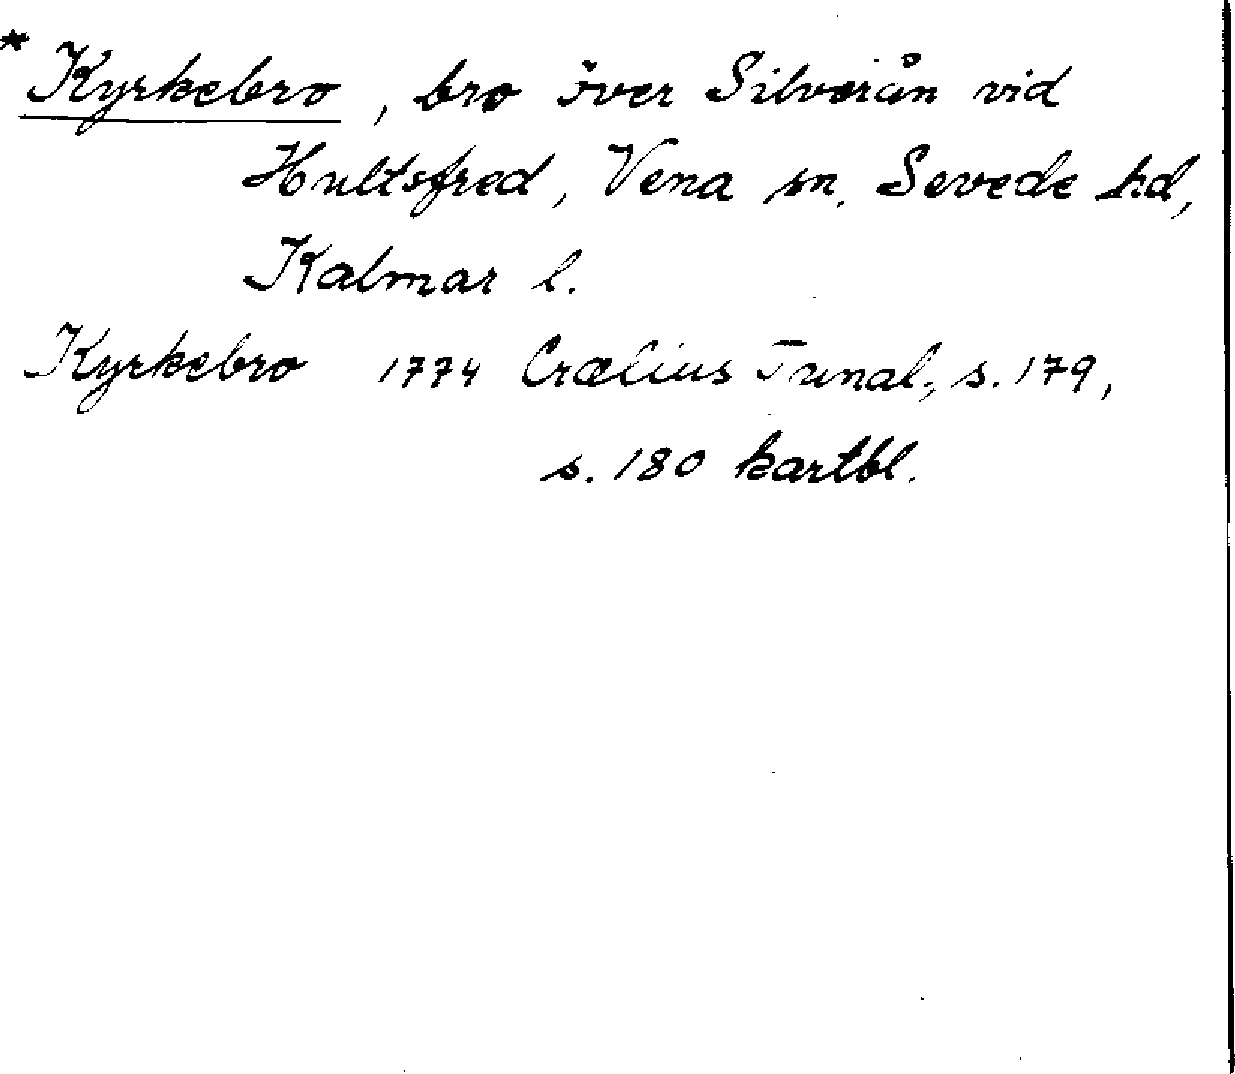 * Kyrkebro, bro över Silverån vid
Hultsfred, Vena sn. Sevede hd,
Kalmar l.
Kyrkebro 1774 Crælius Tunal., s. 179,
s. 180 kartbl.